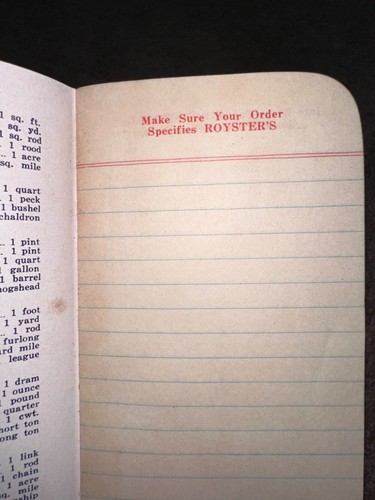 1 sq. ft.
sq. yd.
1 sq. rod
1 rood
1 acre
sq. mile
1 quart
1 peck
1 bushel
chaldron
1 pint
1 pint
1 quart
1 gallon
1 barrel
hogshead
1 foot
1 yard
1 rod
furlong
mile
league
1 dram
1 ounce
pound
quarter
1 cwt.
ton
ton
1 link
1 rod
1 chain
1 acre
sq. mile
Make Sure Your Order
Specifies ROYSTER'S